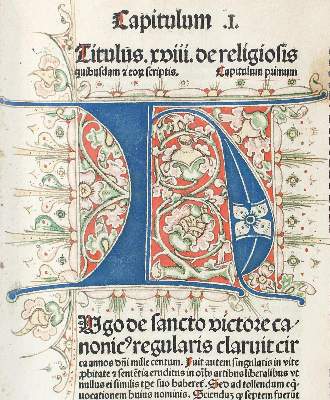 Capitulum .I.
Titulus. xviii. de religiosis
quibusdam ⁊ eoꝝ scriptis. Capitulum primum
H
Vgo de sancto victore ca-
nonicꝰ regularis claruit cir
ca annos dñi mille centum. Fuit autem singularis in vite
ꝓbitate ⁊ sentẽtia eruditus in oĩbꝰ artibus liberalibus vt
nullus ei similis tꝑe suo haberet. Sed ad tollendum eq̃-
uocationem huius nominis. Sciendum ꝙ septem fuerũt